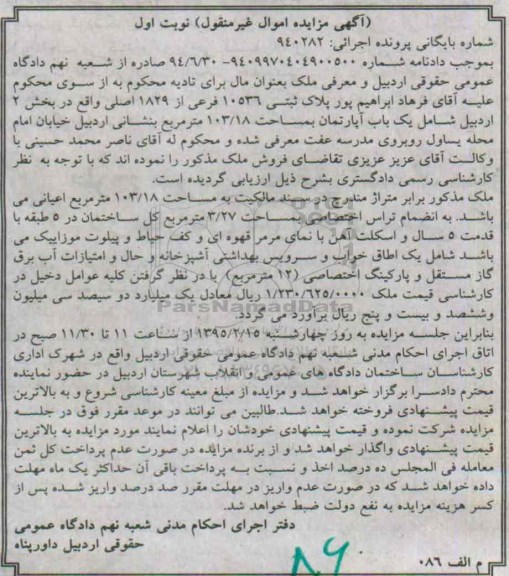 (آگهی مزایده اموال غیرمنقول) نوبت اول
شماره بایگانی پرونده اجرائی: ۹۴۰۲۸۲
بموجب دادنامه شماره ۹۴۰۹۹۷۰۴۰۴۹۰۰۵۰۰- ۹۴/۶/۳۰ صادره از شعبه نهم دادگاه
عمومی حقوقی اردبیل و معرفی ملک بعنوان مال برای تادیه محکوم به از سوی محکوم
علیه آقای فرهاد ابراهیم پور پلاک ثبتی ۱۰۵۳۶ فرعی از ۱۸۲۹ اصلی واقع در بخش ۲
اردبیل شامل یک باب آپارتمان بمساحت ۱۰۳/۱۸ مترمربع بنشانی اردبیل خیابان امام
محله یساول روبروی مدرسه عفت معرفی شده و محکوم له آقای ناصر محمد حسینی با
وکالت آقای عزیز عزیزی تقاضای فروش ملک مذکور را نموده اند که با توجه به نظر
کارشناسی رسمی دادگستری بشرح ذیل ارزیابی گردیده است.
ملک مذکور برابر متراژ مندرج در سند مالکیت به مساحت ۱۰۳/۱۸ مترمربع اعیانی می
باشد. به انضمام تراس اختصاصی بمساحت ۳/۲۷ مترمربع کل ساختمان در ۵ طبقه با
قدمت ۵ سال و اسکلت آهن با نمای مرمر قهوه ای و کف حیاط و پیلوت موزاییک می
باشد شامل یک اطاق خواب و سرویس بهداشتی آشپزخانه و حال و امتیازات آب برق
گاز مستقل و پارکینگ اختصاصی (۱۲ مترمربع) با در نظر گرفتن کلیه عوامل دخیل در
کارشناسی قیمت ملک ۱/۲۳۰/۶۲۵/۰۰۰۰ ریال معادل یک میلیارد دو سیصد سی میلیون
وششصد و بیست و پنج ریال برآورد می گردد.
بنابراین جلسه مزایده به روز چهارشنبه ۱۳۹۵/۲/۱۵ از ساعت ۱۱ تا ۱۱/۳۰ صبح در
اتاق اجرای احکام مدنی شعبه نهم دادگاه عمومی حقوقی اردبیل واقع در شهرک اداری
کارشناسان ساختمان دادگاه های عمومی و انقلاب شهرستان اردبیل در حضور نماینده
محترم دادسرا برگزار خواهد شد و مزایده از مبلغ معینه کارشناسی شروع و به بالاترین
قیمت پیشنهادی فروخته خواهد شد.طالبین می توانند در موعد مقرر فوق در جلسه
مزایده شرکت نموده و قیمت پیشنهادی خودشان را اعلام نمایند مورد مزایده به بالاترین
قیمت پیشنهادی واگذار خواهد شد و از برنده مزایده در صورت عدم پرداخت کل ثمن
معامله فی المجلس ده درصد اخذ و نسبت به پرداخت باقی آن حداکثر یک ماه مهلت
داده خواهد شد که در صورت عدم واریز در مهلت مقرر صد درصد واریز شده پس از
کسر هزینه مزایده به نفع دولت ضبط خواهد شد.
دفتر اجرای احکام مدنی شعبه نهم دادگاه عمومی
حقوقی اردبیل داورپناه
م الف ۰۸۶
۸۹
ParsNamadData